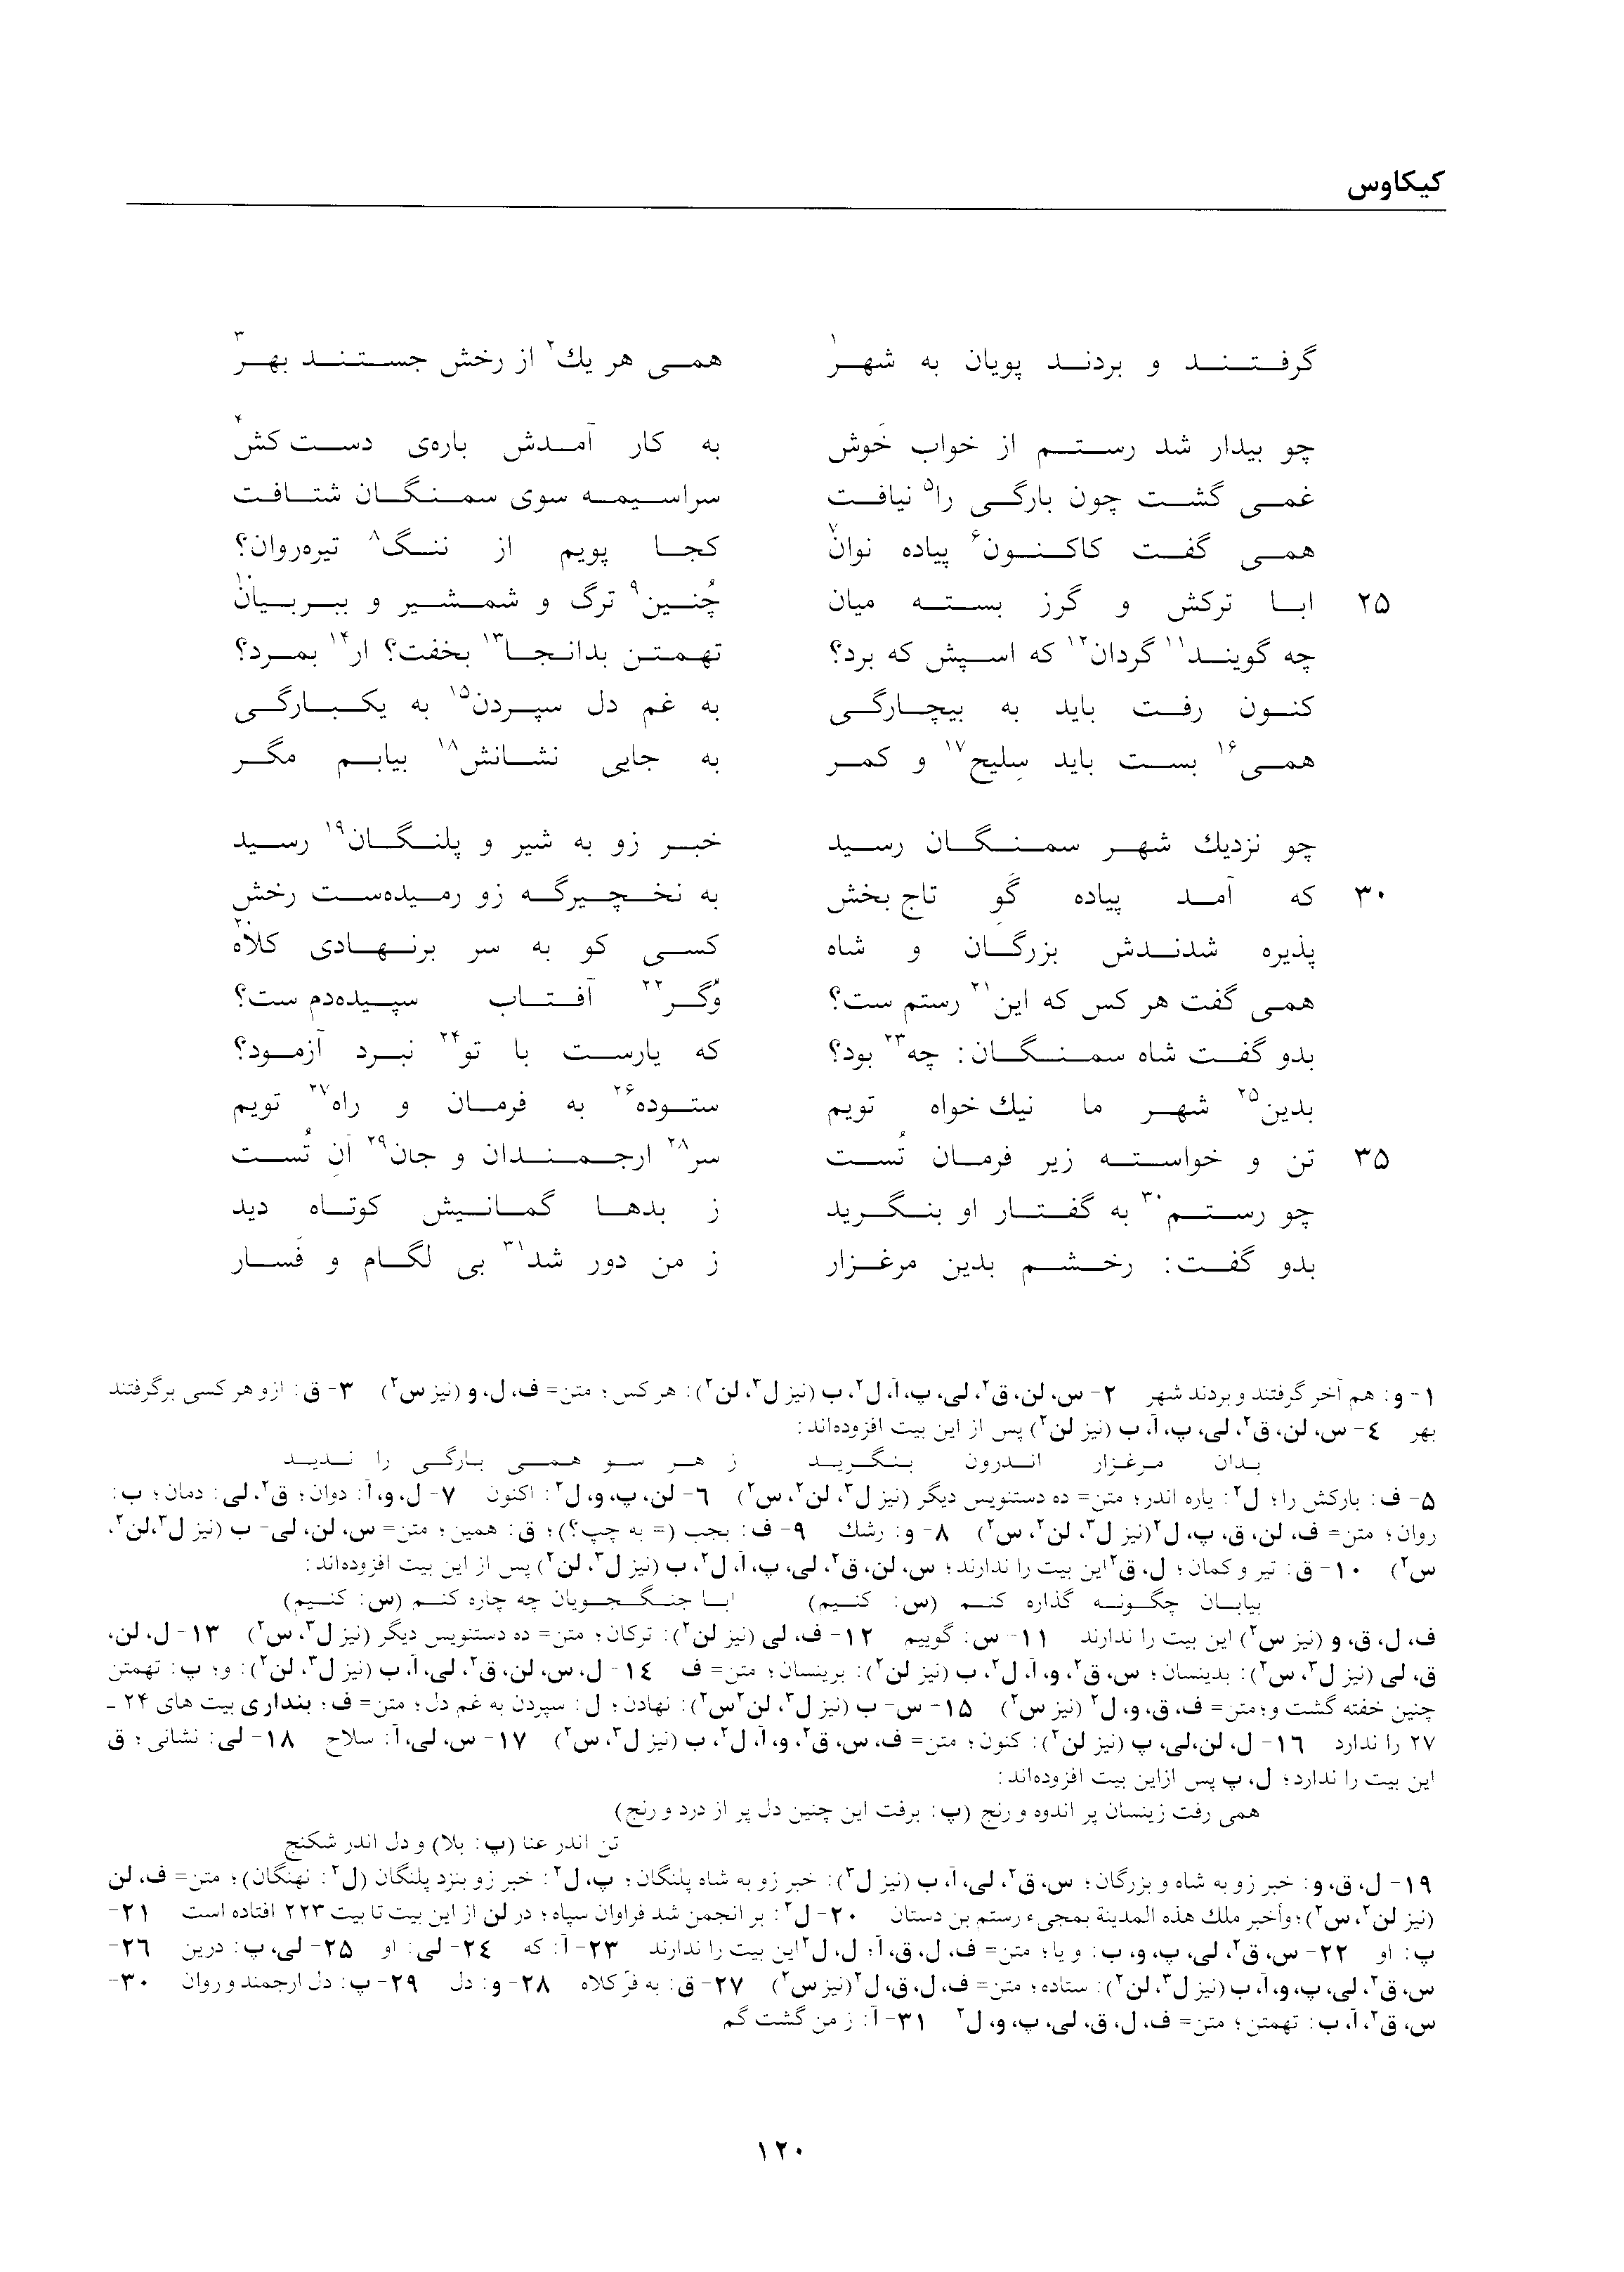 کیکاوس
گرفتند و بردند پویان به شهر۱ همی هر یك۲ از رخش جستند بهر۳
چو بیدار شد رستم از خواب خَوش به کار آمدش باره‌ی دست کش۴
غمی گشت چون بارگی را۵ نیافت سراسیمه سوی سمنگان شتافت
همی گفت کاکنون۶ پیاده نوان۷ کجا پویم از ننگ۸ تیره‌روان؟
۲۵ ابا ترکش و گرز بسته میان چُنین۹ ترگ و شمشیر و ببربیان۱۰
چه گویند۱۱ گردان۱۲ که اسپش که برد؟ تهمتن بدانجا۱۳ بخفت؟ ار۱۴ بمرد؟
کنون رفت باید به بیچارگی به غم دل سپردن۱۵ به یکبارگی
همی۱۶ بست باید سِلیح۱۷ و کمر به جایی نشانش۱۸ بیابم مگر
چو نزدیك شهر سمنگان رسید خبر زو به شیر و پلنگان۱۹ رسید
۳۰ که آمد پیاده گَوِ تاج بخش به نخچیرگه زو رمیده‌ست رخش
پذیره شدندش بزرگان و شاه کسی کو به سر برنهادی کلاه۲۰
همی گفت هر کس که این۲۱ رستم ست؟ وُگر۲۲ آفتاب سپیده‌دم ست؟
بدو گفت شاه سمنگان: چه۲۳ بود؟ که یارست با تو۲۴ نبرد آزمود؟
بدین۲۵ شهر ما نیك خواه تویم ستوده۲۶ به فرمان و راه۲۷ تویم
۳۵ تن و خواسته زیر فرمان تُست سر۲۸ ارجمندان و جان۲۹ آنِ تُست
چو رستم۳۰ به گفتار او بنگرید ز بدها گمانیش کوتاه دید
بدو گفت: رخشم بدین مرغزار ز من دور شد۳۱ بی لگام و فَسار
۱- و: هم آخر گرفتند و بردند شهر ۲- س، لن، ق۲، لی، پ، آ، ل۲، ب (نیز ل۳، لن۲): هر کس؛ متن= ف، ل، و (نیز س۲) ۳- ق: ازو هر کسی برگرفتند
بهر ٤- س، لن، ق۲، لی، پ، آ، ب (نیز لن۲) پس از این بیت افزوده‌اند:
بدان مرغزار اندرون بنگرید ز هر سو همی بارگی را ندید
۵- ف: بارکش را؛ ل۲: یاره اندر؛ متن= ده دستنویس دیگر (نیز ل۳، لن۲، س۲) ٦- لن، پ، و، ل۲: اکنون ۷- ل، و، آ: دوان؛ ق۲، لی: دمان؛ ب:
روان؛ متن= ف، لن، ق، پ، ل۲(نیز ل۳، لن۲، س۲) ۸- و: رشك ۹- ف: بجب (= به چپ؟)؛ ق: همین؛ متن= س، لن، لی- ب (نیز ل۳،لن۲،
س۲) ۱۰- ق: تیر و کمان؛ ل، ق۲این بیت را ندارند؛ س، لن، ق۲، لی، پ، آ، ل۲، ب (نیز ل۳، لن۲) پس از این بیت افزوده‌اند:
بیابان چگونه گذاره کنم (س: کنیم) ابا جنگجویان چه چاره کنم (س: کنیم)
ف، ل، ق، و (نیز س۲) این بیت را ندارند ۱۱- س: گوییم ۱۲- ف، لی (نیز لن۲): ترکان؛ متن= ده دستنویس دیگر (نیز ل۳، س۲) ۱۳- ل، لن،
ق، لی (نیز ل۳، س۲): بدینسان؛ س، ق۲، و، آ، ل۲، ب (نیز لن۲): برینسان؛ متن= ف ١٤- ل، س، لن، ق۲، لی، آ، ب (نیز ل۳، لن۲): و؛ پ: تهمتن
چنین خفته گشت و؛متن= ف، ق، و، ل۲ (نیز س۲) ۱۵- س- ب (نیز ل۳، لن۲س۲): نهادن؛ ل: سپردن به غم دل؛ متن= ف؛ بنداری بیت های ۲۴ ـ
۲۷ را ندارد ۱٦- ل، لن،لی، پ (نیز لن۲): کنون؛ متن= ف، س، ق۲، و، آ، ل۲، ب (نیز ل۳، س۲) ۱۷- س، لی، آ: سلاح ۱۸- لی: نشانی؛ ق
این بیت را ندارد؛ ل، پ پس ازاین بیت افزوده‌اند:
همی رفت زینسان پر اندوه و رنج (پ: برفت این چنین دل پر از درد و رنج)
تن اندر عنا (پ: بلا) و دل اندر شکنج
۱۹- ل، ق، و: خبر زو به شاه و بزرگان؛ س، ق۲، لی، آ، ب (نیز ل۳): خبر زو به شاه پلنگان؛ پ، ل۲: خبر زو بنزد پلنگان (ل۲: نهنگان)؛ متن= ف، لن
(نیز لن۲، س۲)؛ وأخبر ملك هذه المدینة بمجیء رستم بن دستان ۲۰- ل۲: بر انجمن شد فراوان سپاه؛ در لن از این بیت تا بیت ۲۲۳ افتاده است ۲۱-
پ: او ۲۲- س، ق۲، لی، پ، و، ب: و یا؛ متن= ف، ل، ق، آ؛ ل، ل۲این بیت را ندارند ۲۳- آ: که ٢٤- لی: او ۲۵- لی، پ: درین ۲٦-
س، ق۲، لی، پ، و، آ، ب(نیز ل۳، لن۲): ستاده؛ متن= ف، ل، ق، ل۲(نیز س۲) ۲۷- ق: به فرّ کلاه ۲۸- و: دل ۲۹- پ: دل ارجمند و روان ۳۰-
س، ق۲، آ، ب: تهمتن؛ متن= ف، ل، ق، لی، پ، و، ل۲ ۳۱- آ: ز من گشت گم
۱۲۰